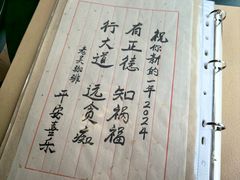 祝你新的一年2024
有正德 知祸福
行大道 远贪痴
平安喜乐